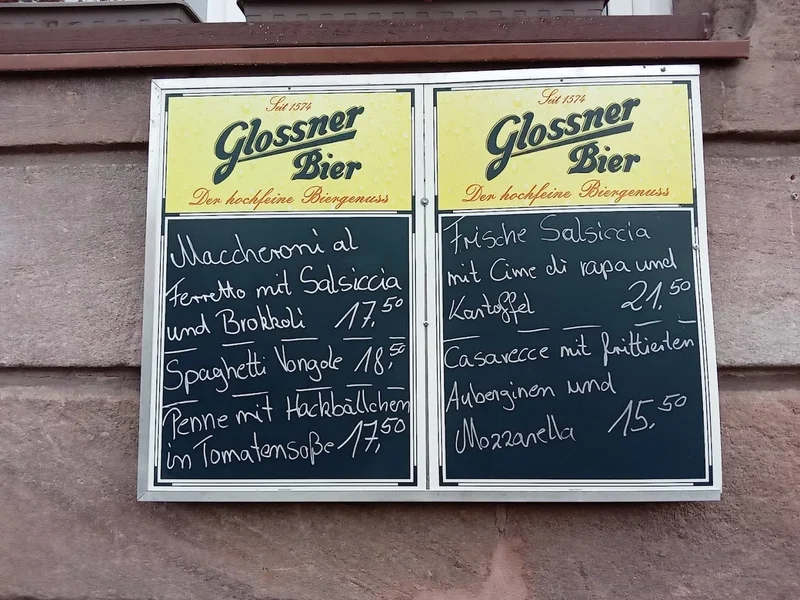 Seit 1574
Glossner
Bier
Der hochfeine Biergenuss
Maccheroni al
Ferretto mit Salsiccia
und Brokkoli 17,50
Spaghetti Vongole 18,50
Penne mit Hackbällchen
in Tomatensoße 17,50
Seit 1574
Glossner
Bier
Der hochfeine Biergenuss
Frische Salsiccia
mit Cime di rapa und
Kartoffel 21,50
Casarecce mit frittierten
Auberginen und
Mozzarella 15,50